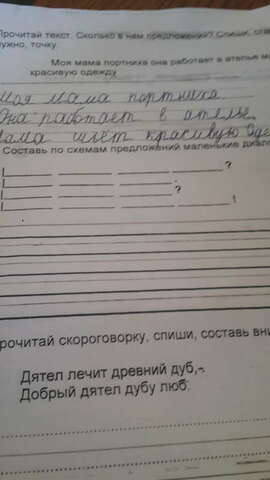 Прочитай текст. Сколько в нем предложений? Спиши, ста
нужно, точку.
Моя мама портниха она работает в ателье м
красивую одежду
Моя мама портниха.
Она работает в ателье.
Мама шьёт красивую оде
Составь по схемам предложений маленькие диал
?
.
?
!
рочитай скороговорку, спиши, составь вни
Дятел лечит древний дуб,-
Добрый дятел дубу люб.